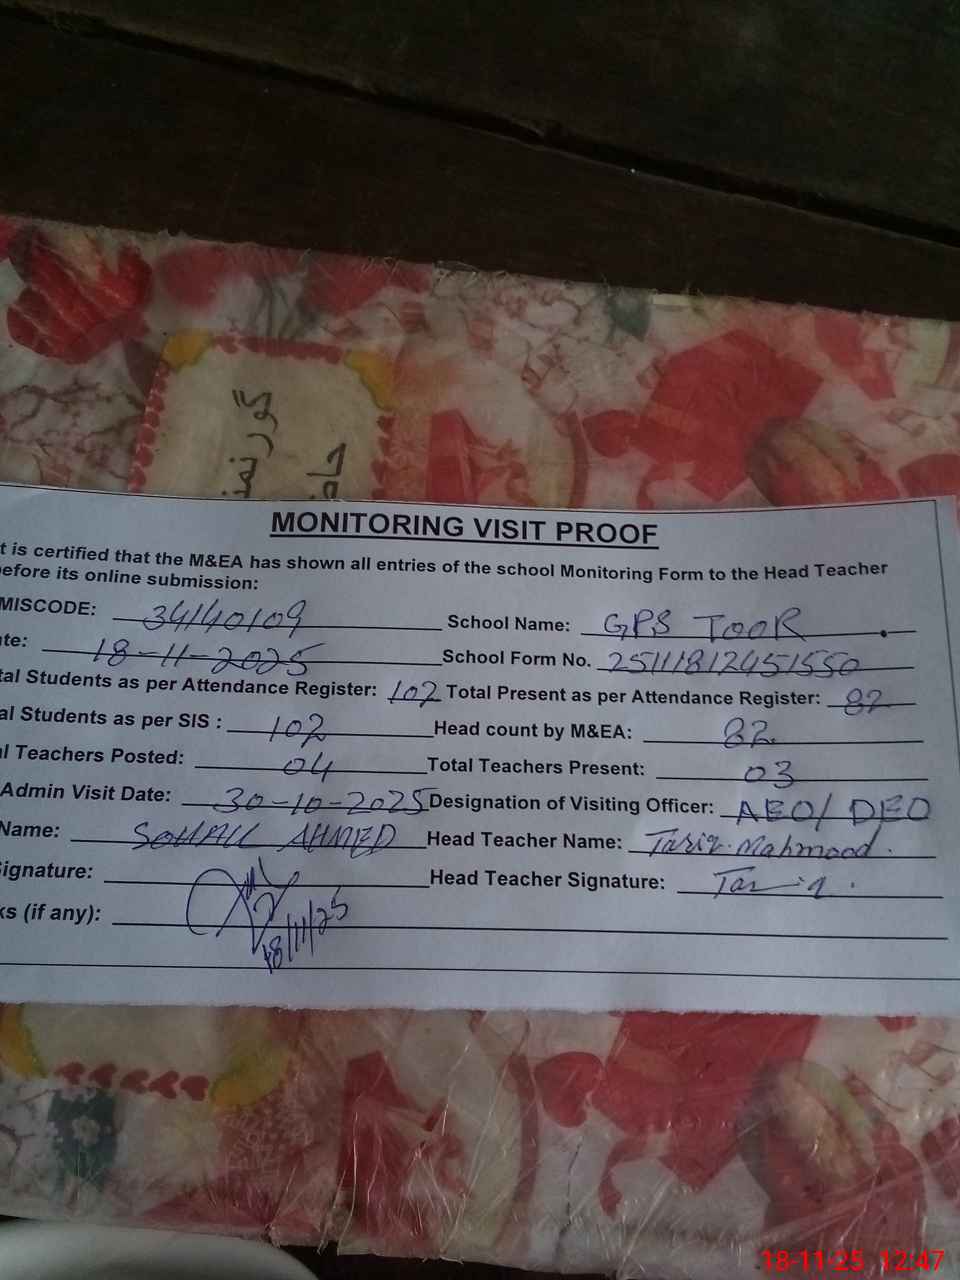 گورنمنٹ
MONITORING VISIT PROOF
t is certified that the M&EA has shown all entries of the school Monitoring Form to the Head Teacher
before its online submission:
MISCODE: 34140109 School Name: GPS TOOR
te: 18-11-2025 School Form No. 25111812451550
tal Students as per Attendance Register: 102 Total Present as per Attendance Register: 82
al Students as per SIS : 102 Head count by M&EA: 82
l Teachers Posted: 04 Total Teachers Present: 03
Admin Visit Date: 30-10-2025 Designation of Visiting Officer: AEO/DEO
Name: SOHAIL AHMED Head Teacher Name: Tariq Mahmood.
ignature: Head Teacher Signature: Tariq.
ks (if any): 18/11/25
18-11-25 12:47